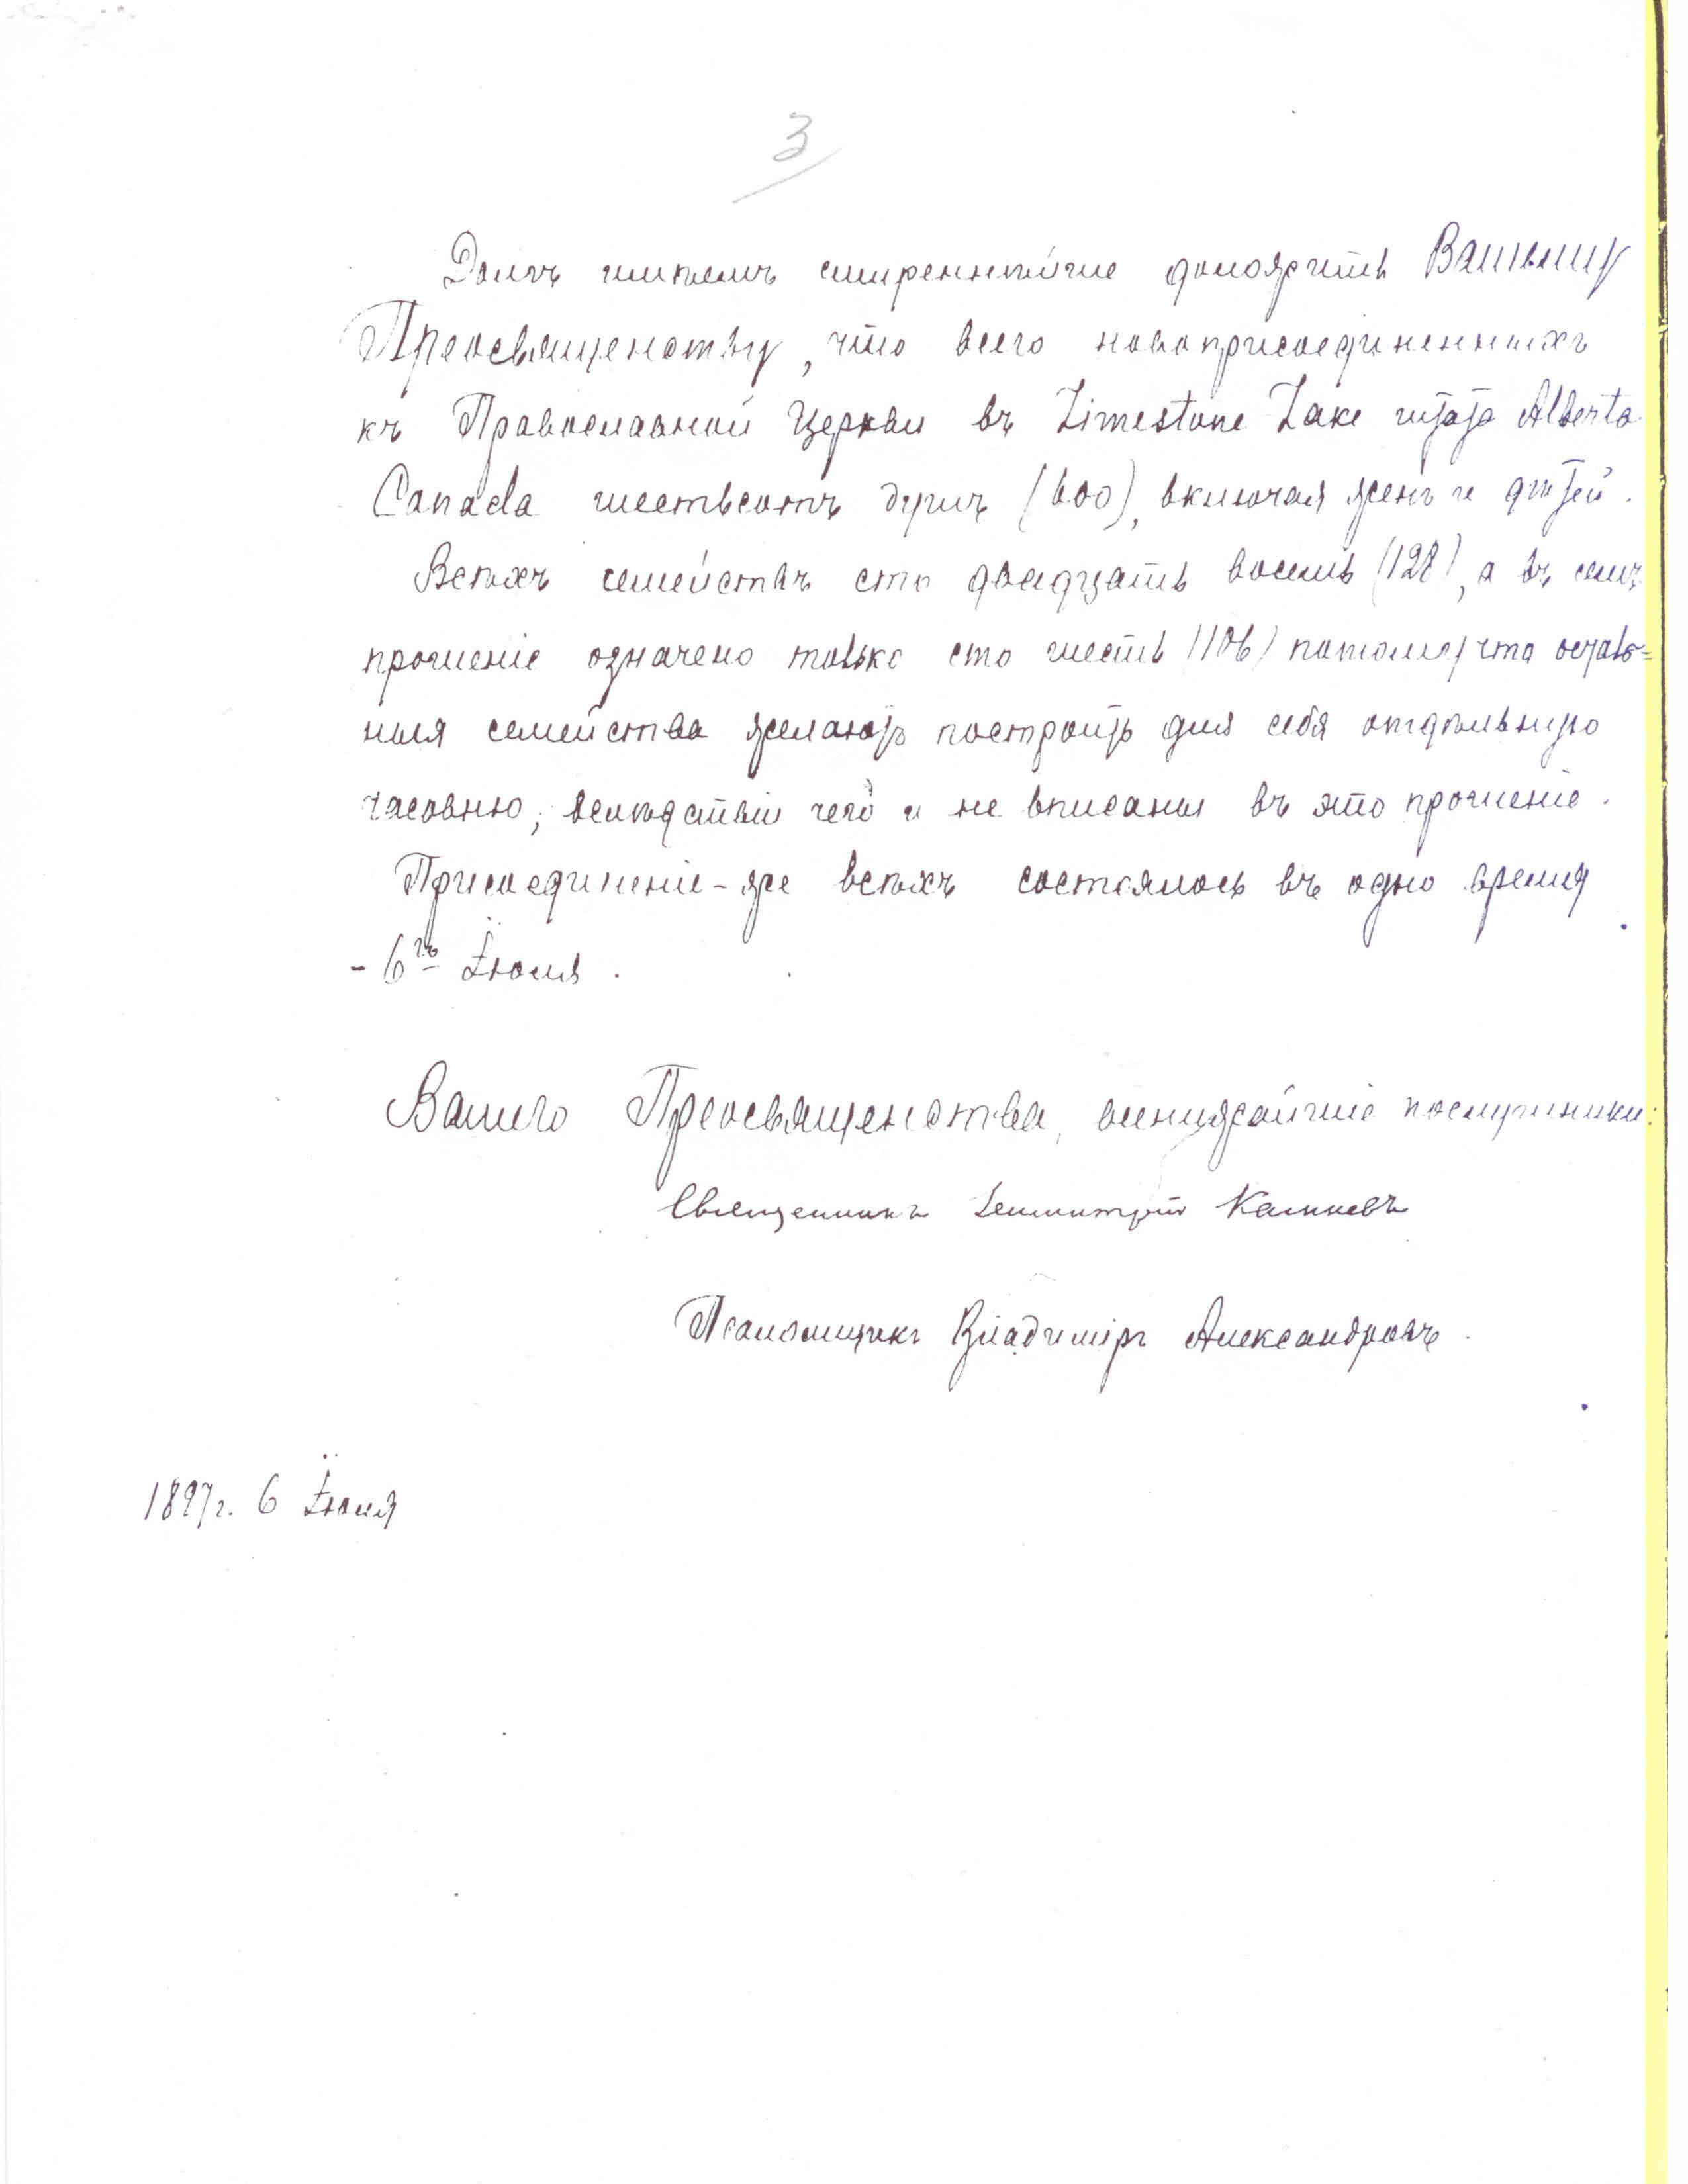 3
Долгъ имѣемъ смиреннѣйше доложить Вашему
Преосвященству, что всего новоприсоединенныхъ
къ Православной Церкви въ Limestone Lake штата Alberta
Canada шестьсотъ душъ (600), включая женъ и дѣтей.
Всѣхъ семействъ сто двадцать восемь (128), а въ семъ
прошеніе означено только сто шесть (106) потому что осталь=
ныя семейства желаютъ построить для себя отдѣльную
часовню, вслѣдствіи чего и не вписаны въ это прошеніе.
Присоединеніе-же всѣхъ состоялось въ одно время
- 6го Іюля.
Вашего Преосвященства, всенижайшіе послушники:
Священникъ Димитрій Камневъ
Псаломщикъ Владиміръ Александровъ.
1897г. 6 Іюля